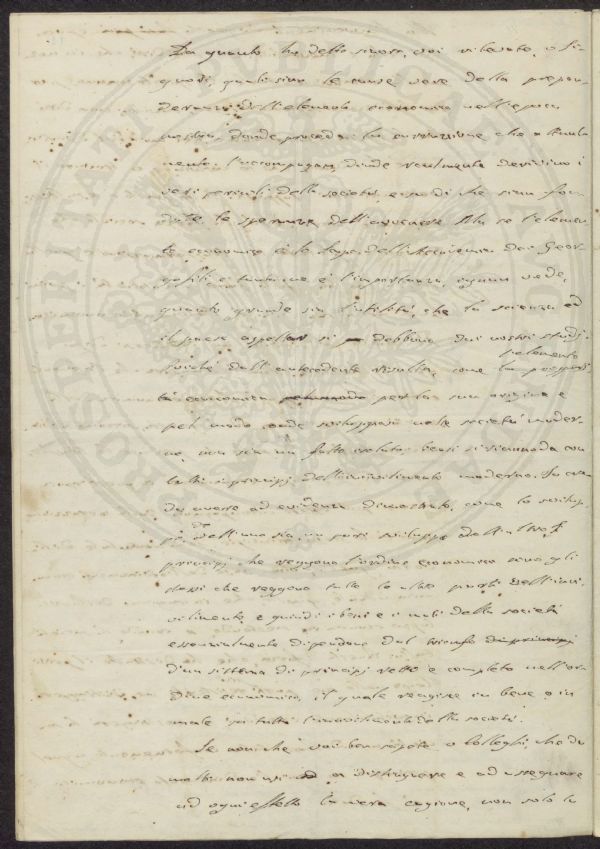 Da quanto ho detto sinora, voi rilevate, o Si-
gnori, quali sieno le cause vere della prepon-
deranza dell'elemento economico nell'epoca
nostra, donde proceda la corruzione che attual-
mente l'accompagna, dinde realmente derivino i
veri pericoli della società, e su di che sieno fon-
date le speranze dell'avvenire. Ma se l'elemen-
to economico è lo scopo dell'Accademia dei Geor-
gofili e tanta ne è l'importanza, ognun vede,
quanto grande sia l'utilità, che la scienza ed
il paese aspettar si debbano dai vostri studj.
Poichè dall'antecedente risulta, come
la prosperi-
tà economica per la sua origine e
pel modo, onde sviluppasi nelle società moder-
ne, non sia un fatto isolato, bensì si riannoda con
tutti i principj dell'incivilimento moderno. Io cre-
do avere ad evidenza dimostrato, come lo svilup-
po dell'uno sia in pari sviluppo dell'altro. I
principj che reggono l'ordine economico sono gli
stessi che reggono tutte le altre parti dell'inci-
vilimento, e quindi i beni e i mali della società
essenzialmente dipendono dal trionfo di principj
d'un sistema di principj retto e completo nell'or-
dine economico, il quale reagisce in bene o in
male su tutto l'incivilimento della società.
Se non che voi ben sapete o Colleghi, che da
molti non usi a distinguere e ad assegnare
ad ogni effetto la vera cagione, non solo la